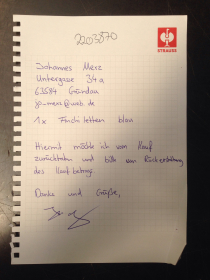 2203870
STRAUSS
Johannes Merz
Untergasse 34a
63584 Gründau
jo-merz@web.de
1x blau
Hiermit möchte ich vom Kauf
zurücktreten und bitte um Rückerstattung
des Kaufbetrags.
Danke und Grüße,